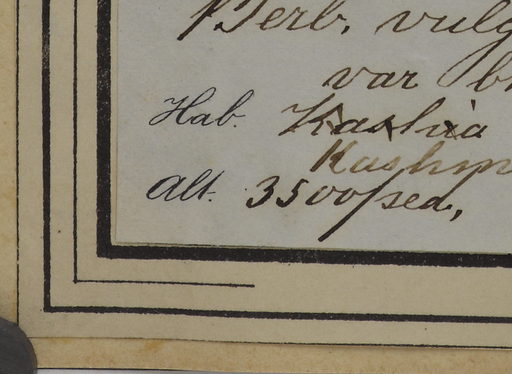 Berb. vulg
var b
Hab. Kashia
Kashm
Alt. 3500/sea,